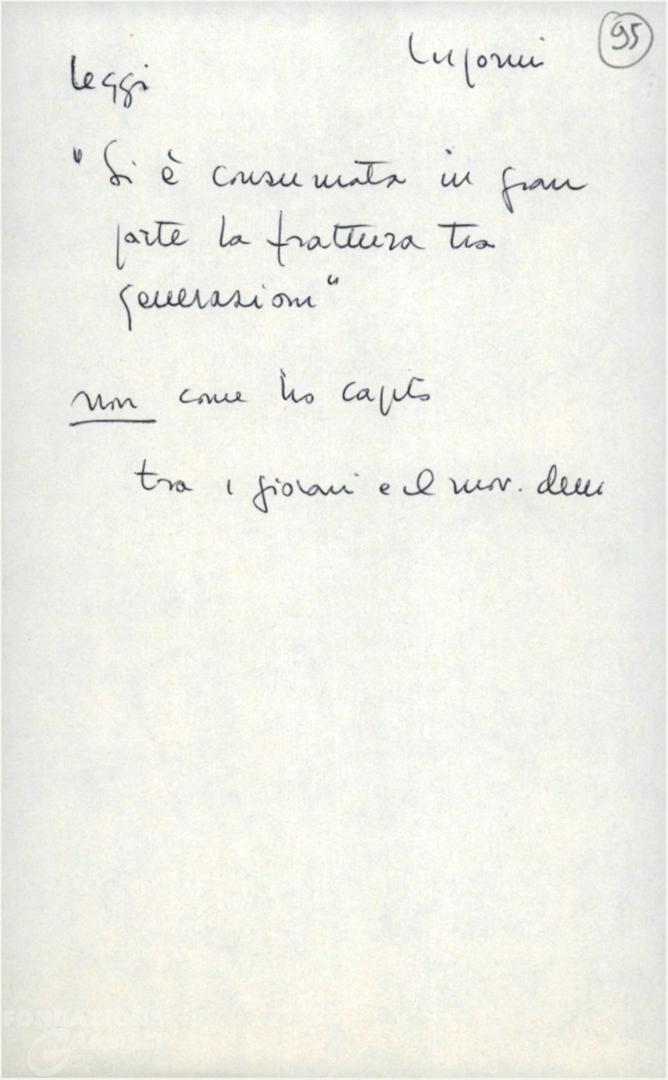 95
leggi Luporini
"Si è consumata in gran
parte la frattura tra
generazioni"
non come ho capito
tra i giovani e il mov. dem
FONDAZIONE
GRAMSCI